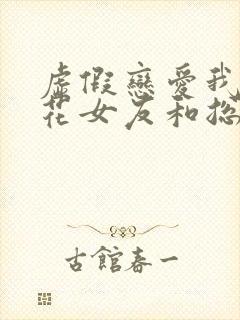 虛假戀愛我
花女友和總
古館春一